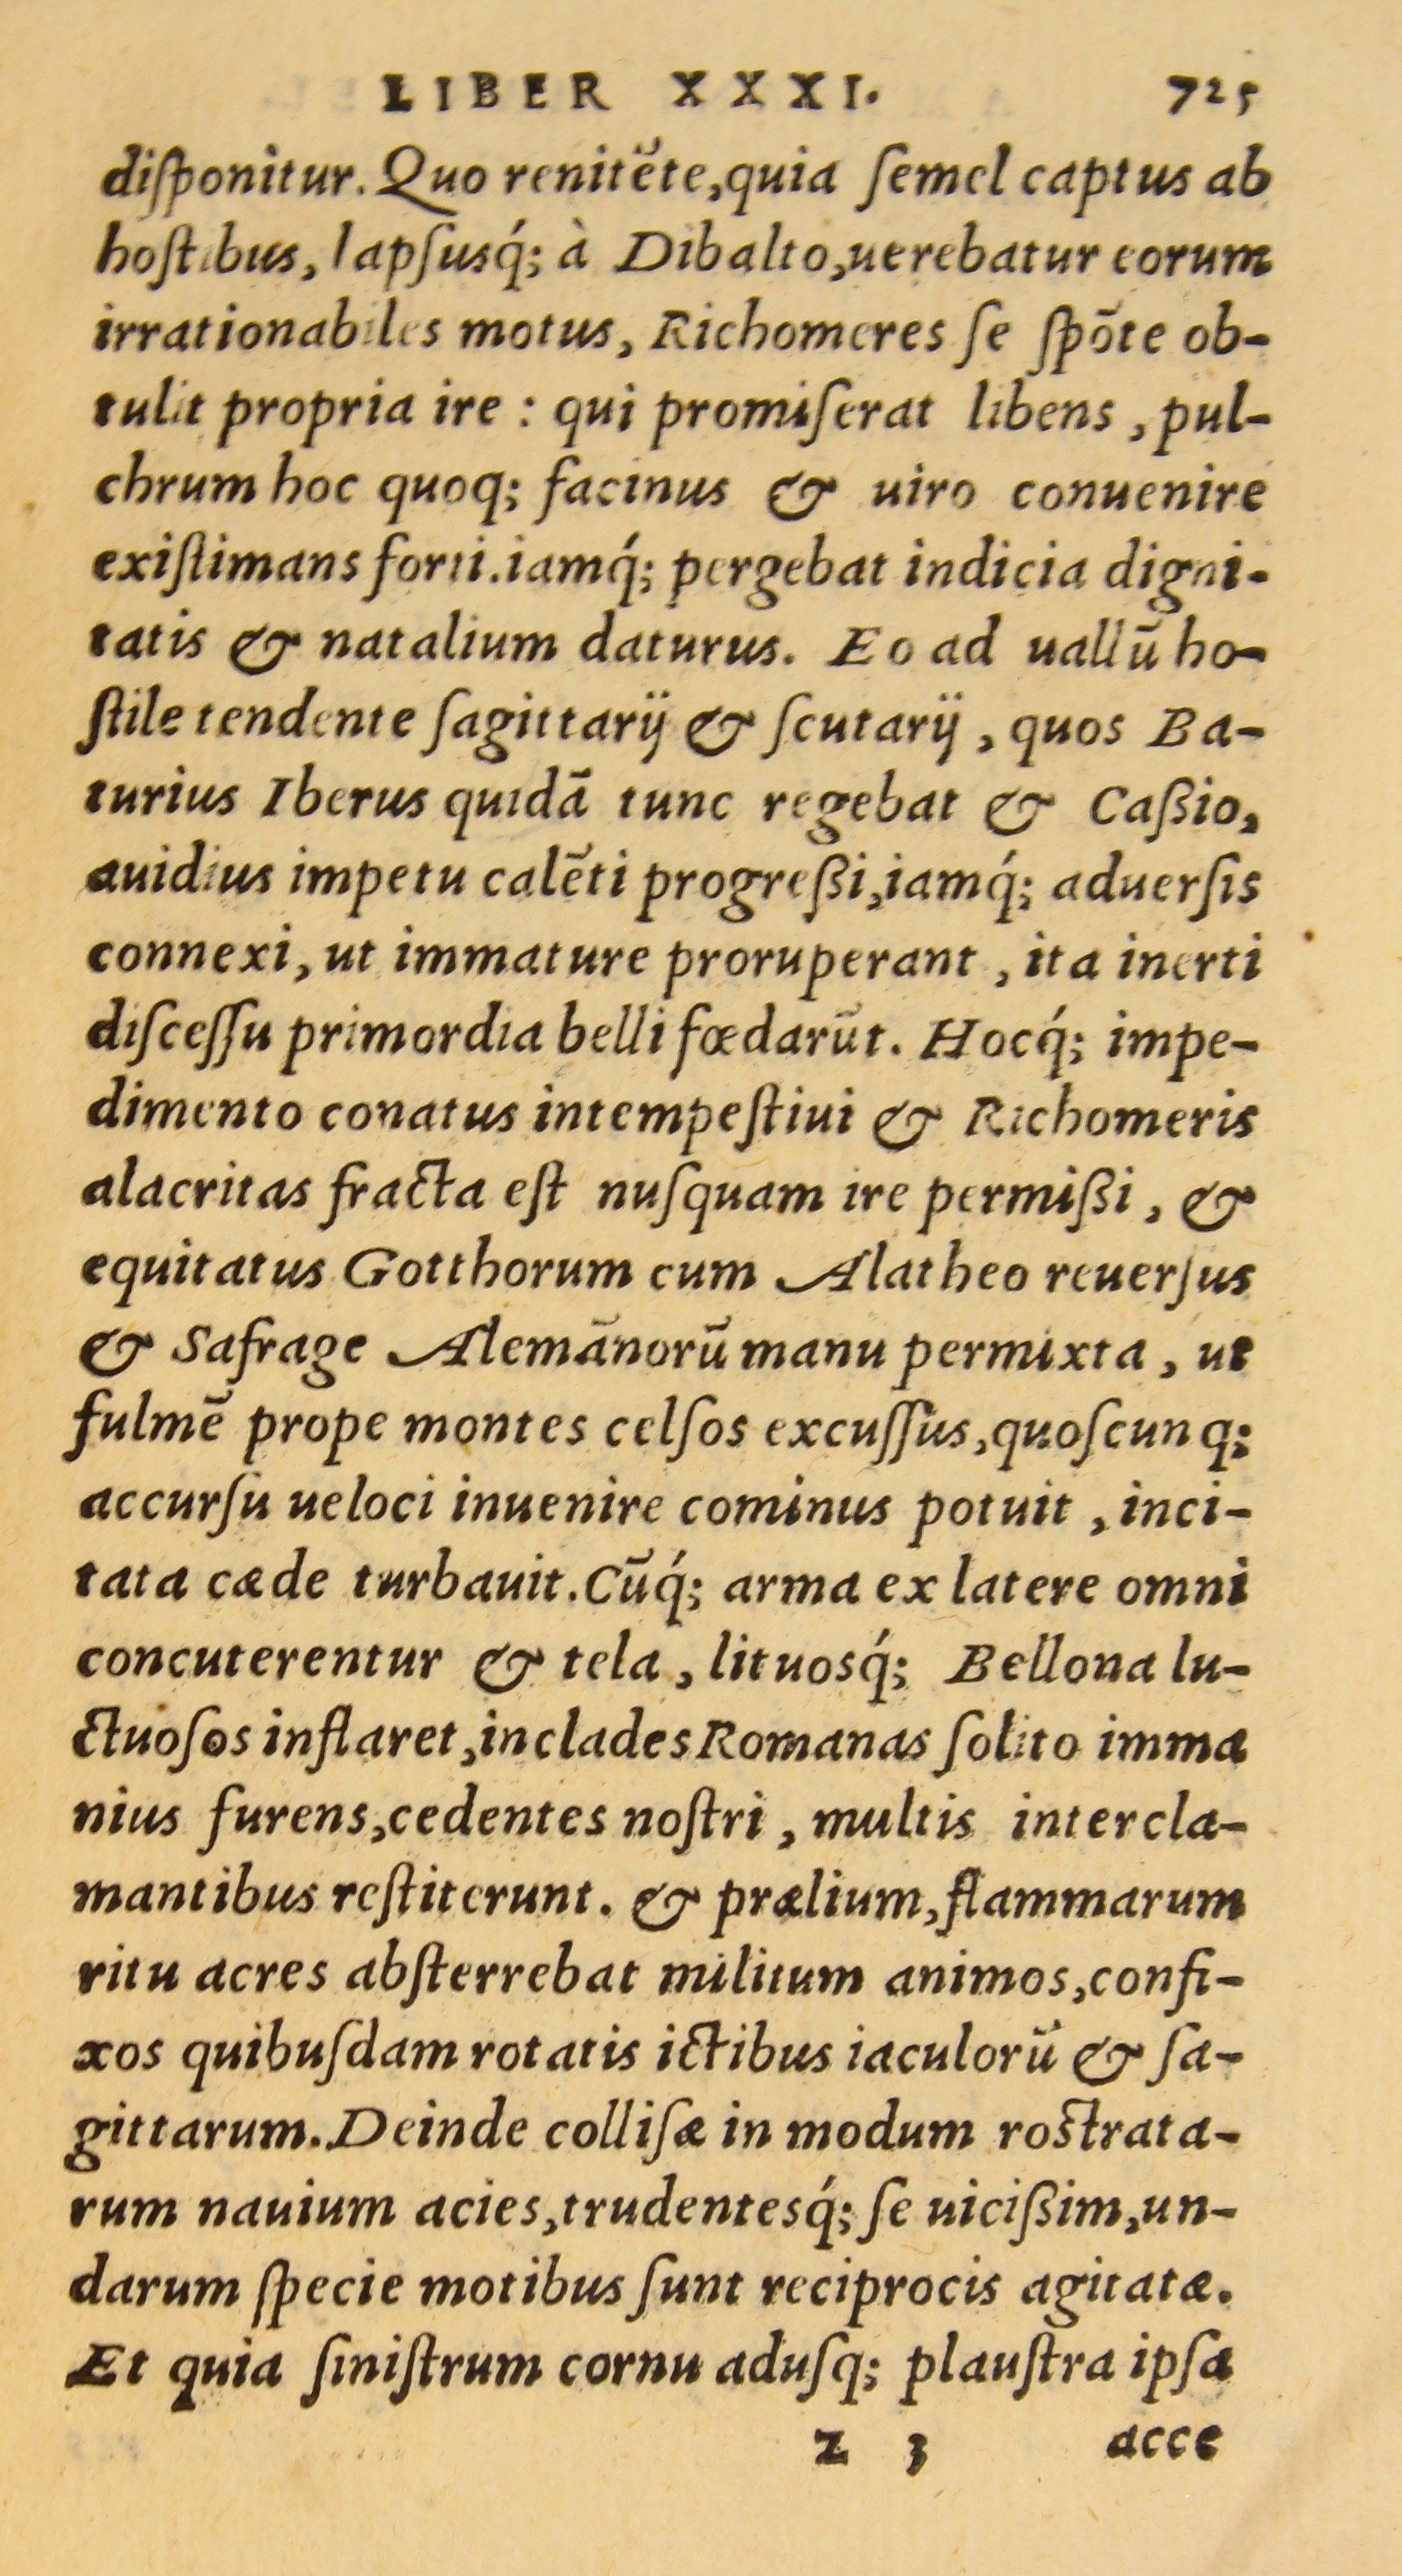 LIBER XXXI. 725
diſponitur. Quo renitēte, quia ſemel captus ab
hoſtibus, lapſusq́; à Dibalto, uerebatur eorum
irrationabiles motus, Richomeres ſe ſpōte ob-
tulit propria ire : qui promiſerat libens, pul-
chrum hoc quoq; facinus & uiro conuenire
exiſtimans forti. iamq́; pergebat indicia digni-
tatis & natalium daturus. Eo ad uallū ho-
ſtile tendente ſagittarij & ſcutarij, quos Ba-
turius Iberus quidā tunc regebat & Caßio,
auidius impetu calēti progreßi, iamq́; aduerſis
connexi, ut immature proruperant, ita inerti
diſceſſu primordia belli fœdarūt. Hocq́; impe-
dimento conatus intempeſtiui & Richomeris
alacritas fracta eſt nuſquam ire permißi, &
equitatus Gotthorum cum Alatheo reuerſus
& Safrage Alemānorū manu permixta, ut
fulmē prope montes celſos excuſſus, quoſcunq;
accurſu ueloci inuenire cominus potuit, inci-
tata cæde turbauit. Cūq́; arma ex latere omni
concuterentur & tela, lituosq́; Bellona lu-
ctuoſos inflaret, in clades Romanas ſolito imma
nius furens, cedentes noſtri, multis intercla-
mantibus reſtiterunt. & prælium, flammarum
ritu acres abſterrebat militum animos, confi-
xos quibuſdam rotatis ictibus iaculorū & ſa-
gittarum. Deinde colliſæ in modum roſtrata-
rum nauium acies, trudentesq́; ſe uicißim, un-
darum ſpecie motibus ſunt reciprocis agitatæ.
Et quia ſiniſtrum cornu aduſq; plauſtra ipſa
z 3 acce